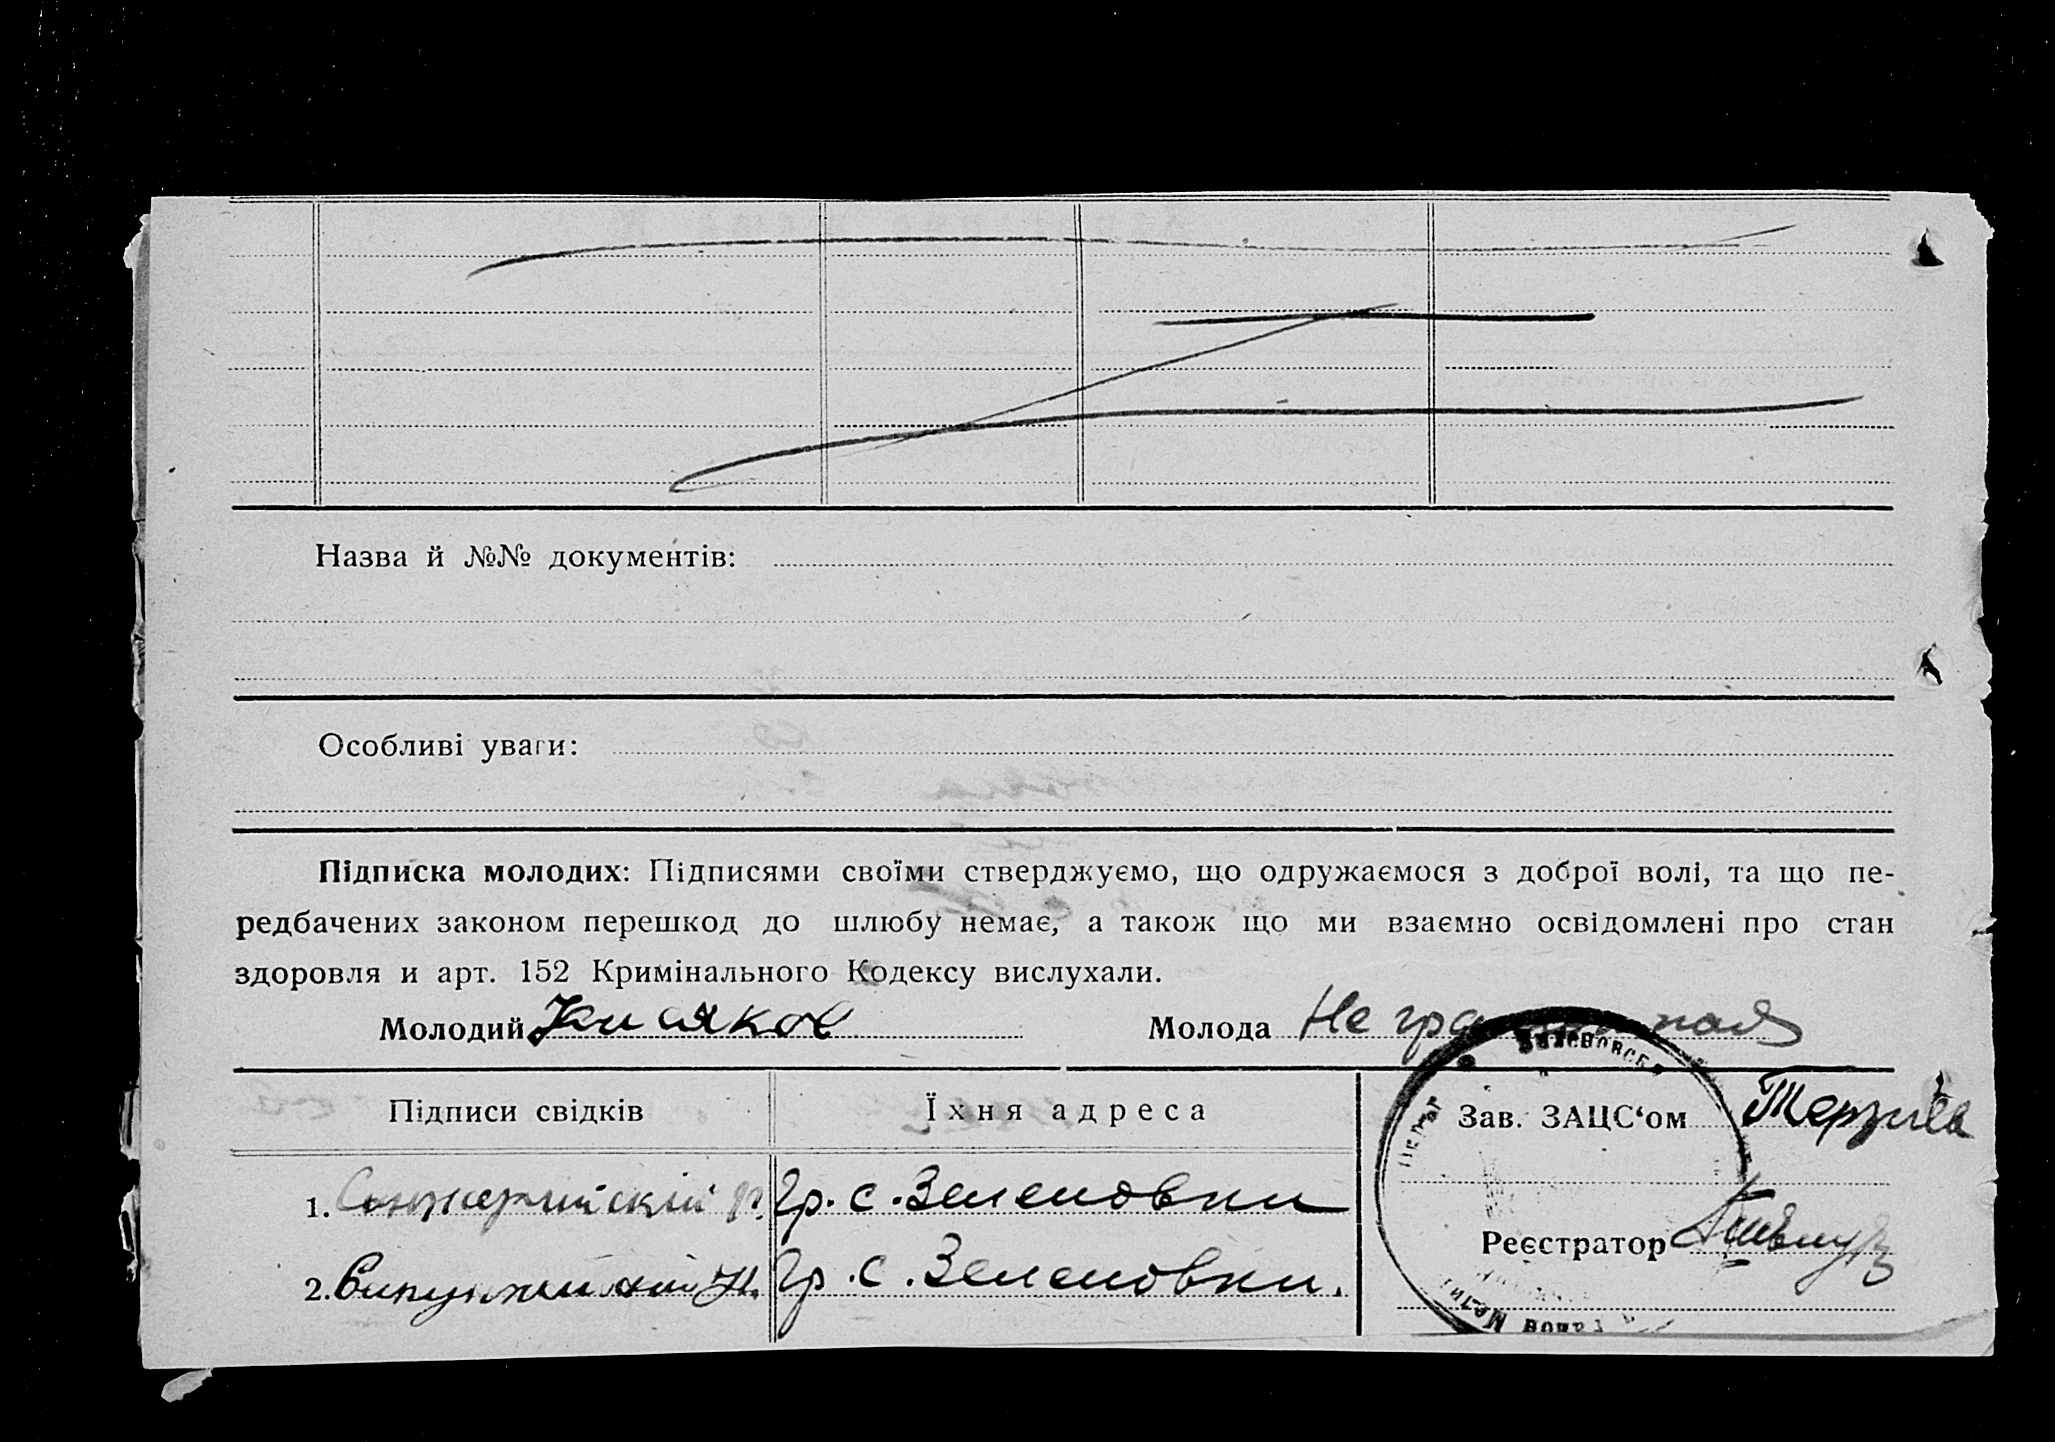 Назва й №№ документів:
Особливі уваги:
Підписка молодих: Підписями своїми стверджуємо, що одружаємося з доброї волі, та що пе-
редбачених законом перешкод до шлюбу немає, а також що ми взаємно освідомлені про стан
здоровля и арт. 152 Кримінального Кодексу вислухали.
Молодий Кисяков Молода Не грамотная
Підписи свідків Їхня адреса Зав. ЗАЦС‘ом
1. Гр. с. Зеленовки
Реєстратор
2. Гр. с. Зеленовки.